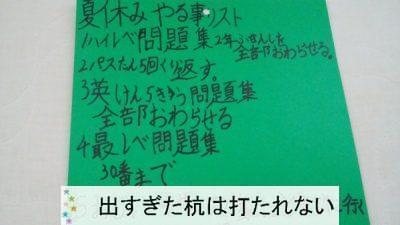 夏休みやる事リスト
1ハイレベ問題集2年ふせんした
全部おわらせる。
2パスたん5回くり返す。
3英けん5きゅう問題集
全部おわらせる
4最レベ問題集
30番まで
行く
出すぎた杭は打たれない